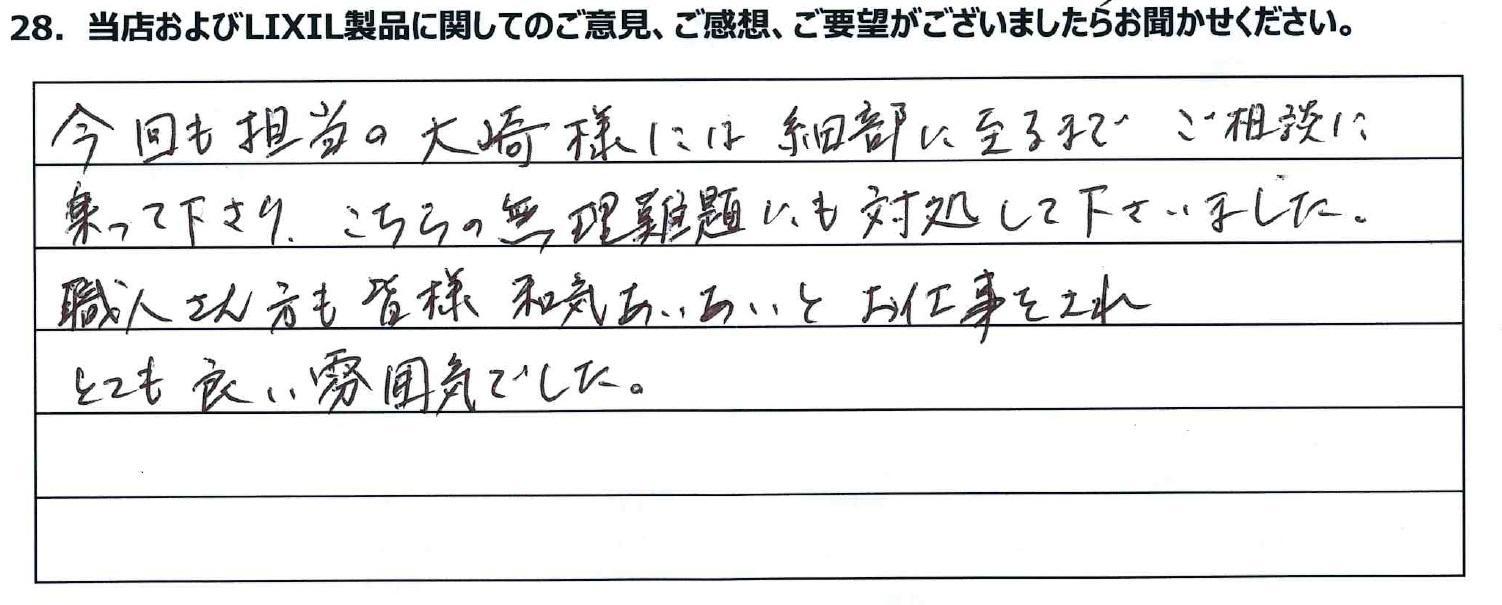 28. 当店およびLIXIL製品に関してのご意見、ご感想、ご要望がございましたらお聞かせください。
今回も担当の大崎様には細部に至るまで ご相談に
乗って下さり、こちらの無理難題にも対処して下さいました。
職人さん方も皆様 和気あいあいと お仕事をされ
とても良い雰囲気でした。